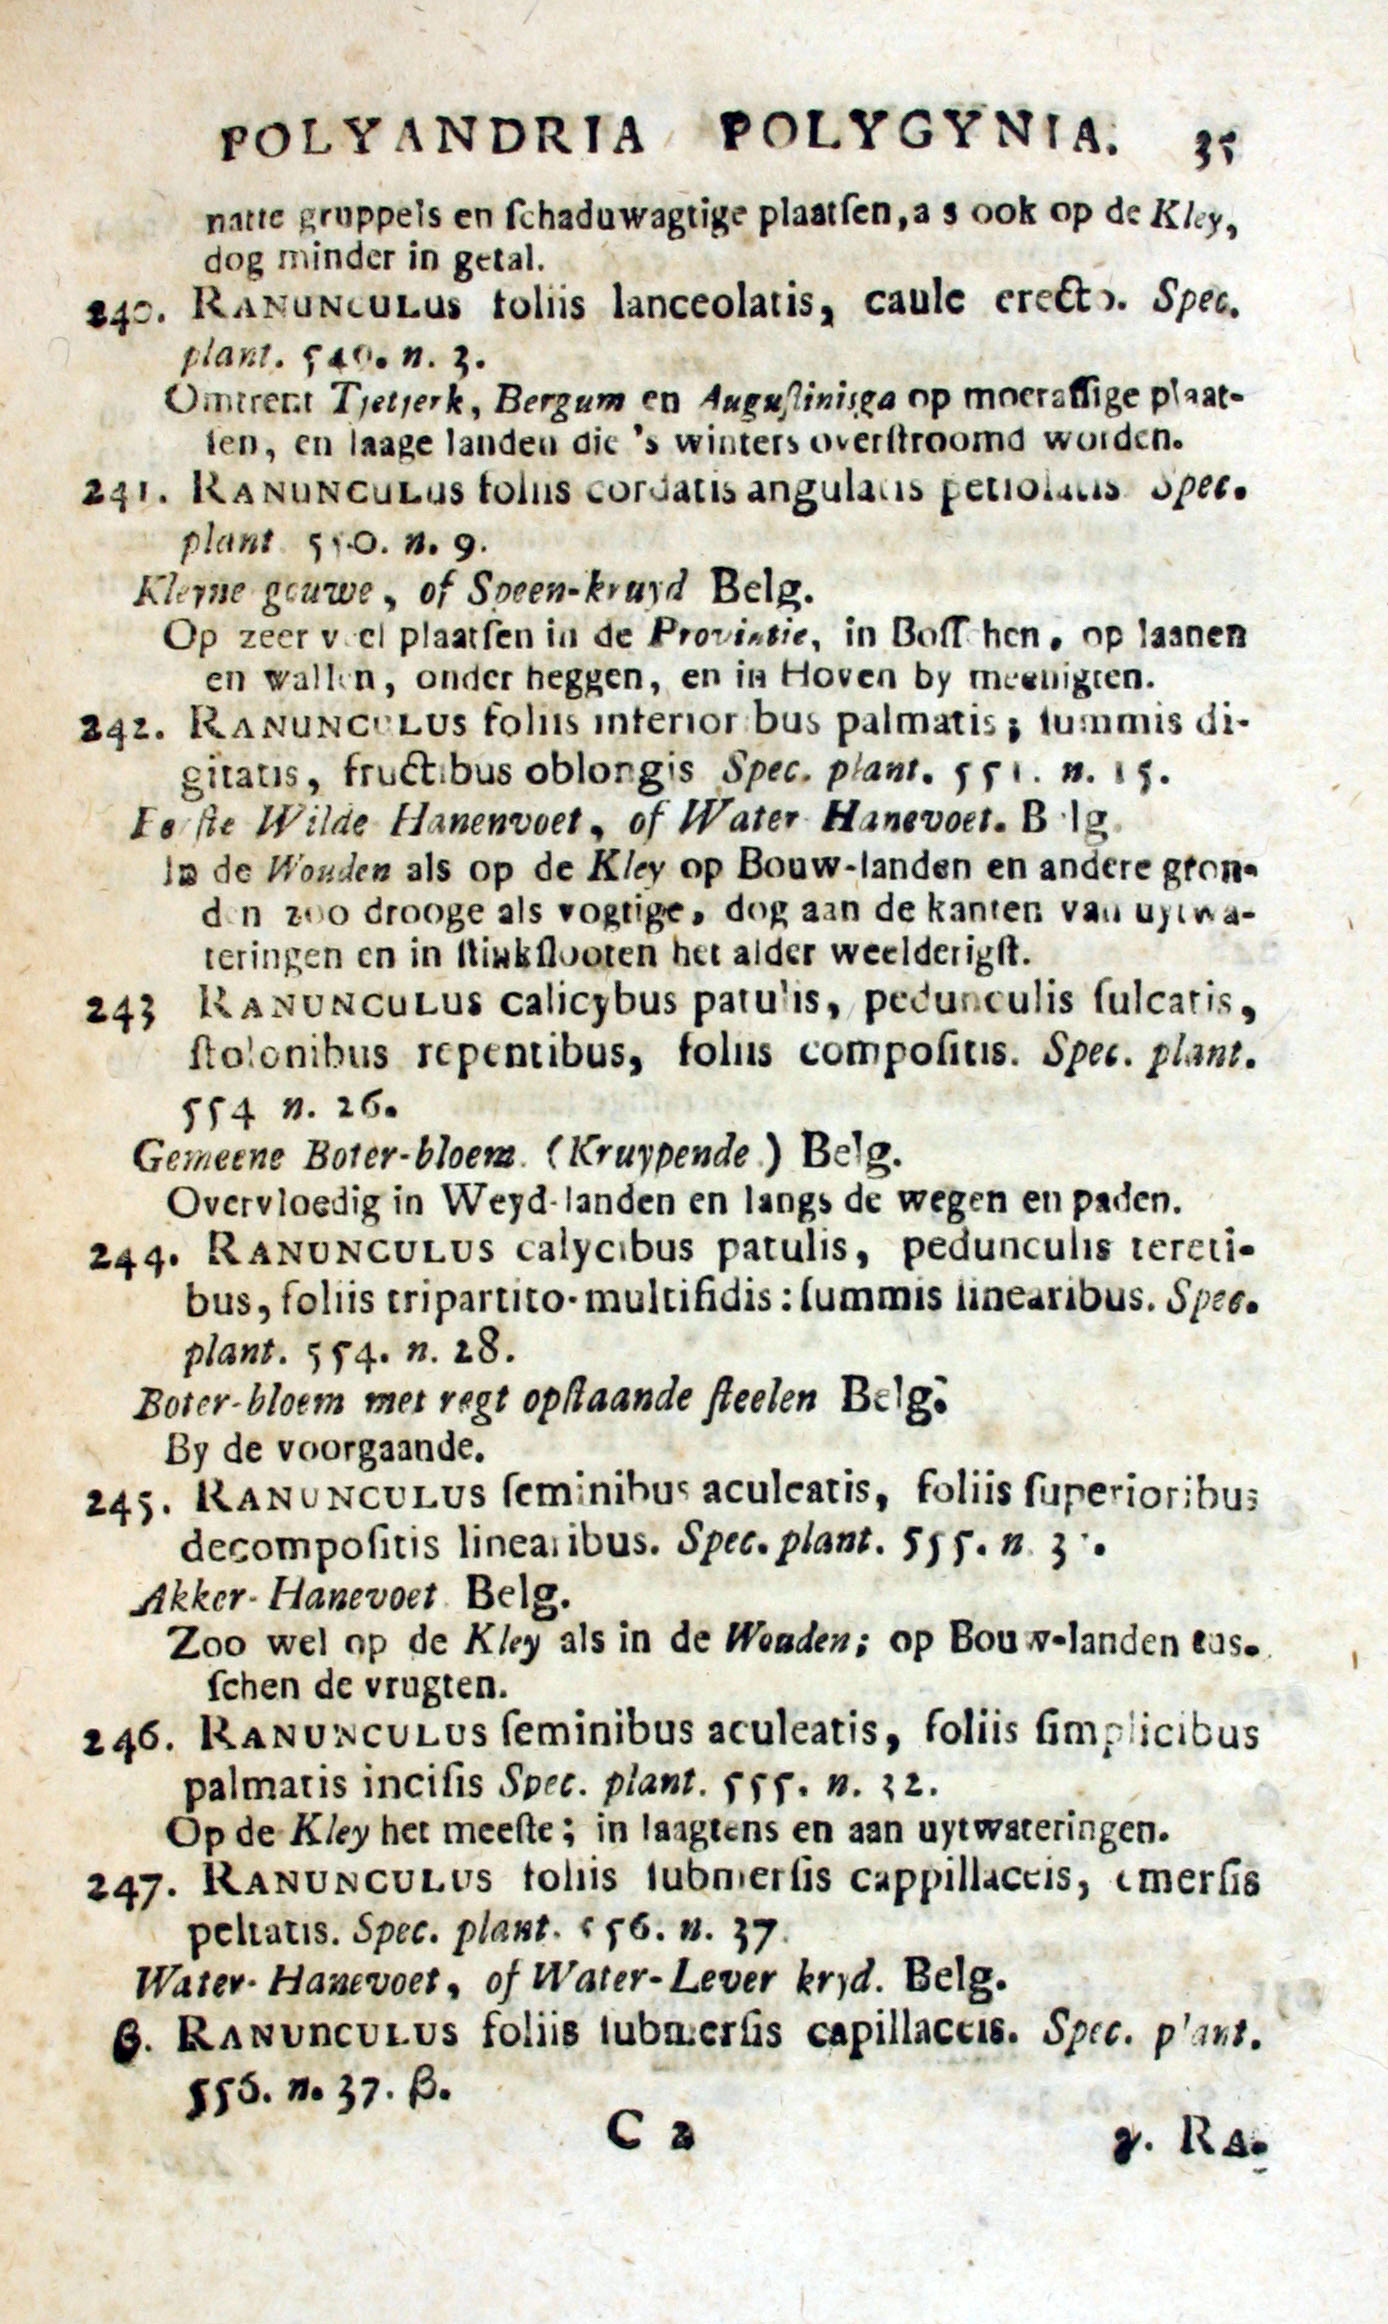 POLYANDRIA POLYGYNIA. 35
natte gruppels en ſchaduwagtige plaatſen, als ook op de Kley,
dog minder in getal.
240. RANUNCULUS foliis lanceolatis, caule erecto. Spec.
plant. 549. n. 3.
Omtrent Tjetjerk, Bergum en Auguſtinisga op moeraſſige plaat-
ſen, en laage landen die 's winters overſtroomd worden.
241. RANUNCULUS foliis cordatis angulatis petiolatis Spec.
plant 550. n. 9.
Kleyne gouwe, of Speen-kruyd Belg.
Op zeer veel plaatſen in de Provintie, in Boſſchen, op laanen
en wallen, onder heggen, en in Hoven by meenigten.
242. RANUNCULUS foliis inferioribus palmatis; ſummis di-
gitatis, fructibus oblongis Spec. plant. 551. n. 15.
Eerſte Wilde Hanenvoet, of Water Hanevoet. Belg.
In de Wouden als op de Kley op Bouw-landen en andere gron-
den zoo drooge als vogtige, dog aan de kanten van uytwa-
teringen en in ſtinkſlooten het alder weelderigſt.
243 RANUNCULUS calicybus patulis, pedunculis ſulcatis,
ſtolonibus repentibus, foliis compoſitis. Spec. plant.
554 n. 26.
Gemeene Boter-bloem. (Kruypende.) Belg.
Overvloedig in Weyd-landen en langs de wegen en paden.
244. RANUNCULUS calycibus patulis, pedunculis tereti-
bus, foliis tripartito-multifidis: ſummis linearibus. Spec.
plant. 554. n. 28.
Boter-bloem met regt opſtaande ſteelen Belg.
By de voorgaande.
245. RANUNCULUS ſeminibus aculeatis, foliis ſuperioribus
decompoſitis linearibus. Spec. plant. 555. n.
Akker-Hanevoet Belg.
Zoo wel op de Kley als in de Wouden; op Bouw-landen tus-
ſchen de vrugten.
246. RANUNCULUS ſeminibus aculeatis, foliis ſimplicibus
palmatis inciſis Spec. plant. 555. n. 32.
Op de Kley het meeſte; in laagtens en aan uytwateringen.
247. RANUNCULUS foliis ſubmerſis cappillaceis, emerſis
peltatis. Spec. plant. 556. n. 37.
Water-Hanevoet, of Water-Lever kryd. Belg.
β. RANUNCULUS foliis ſubmerſis capillaceis. Spec. plant.
556. n. 37. β.
C 2 γ. RA-